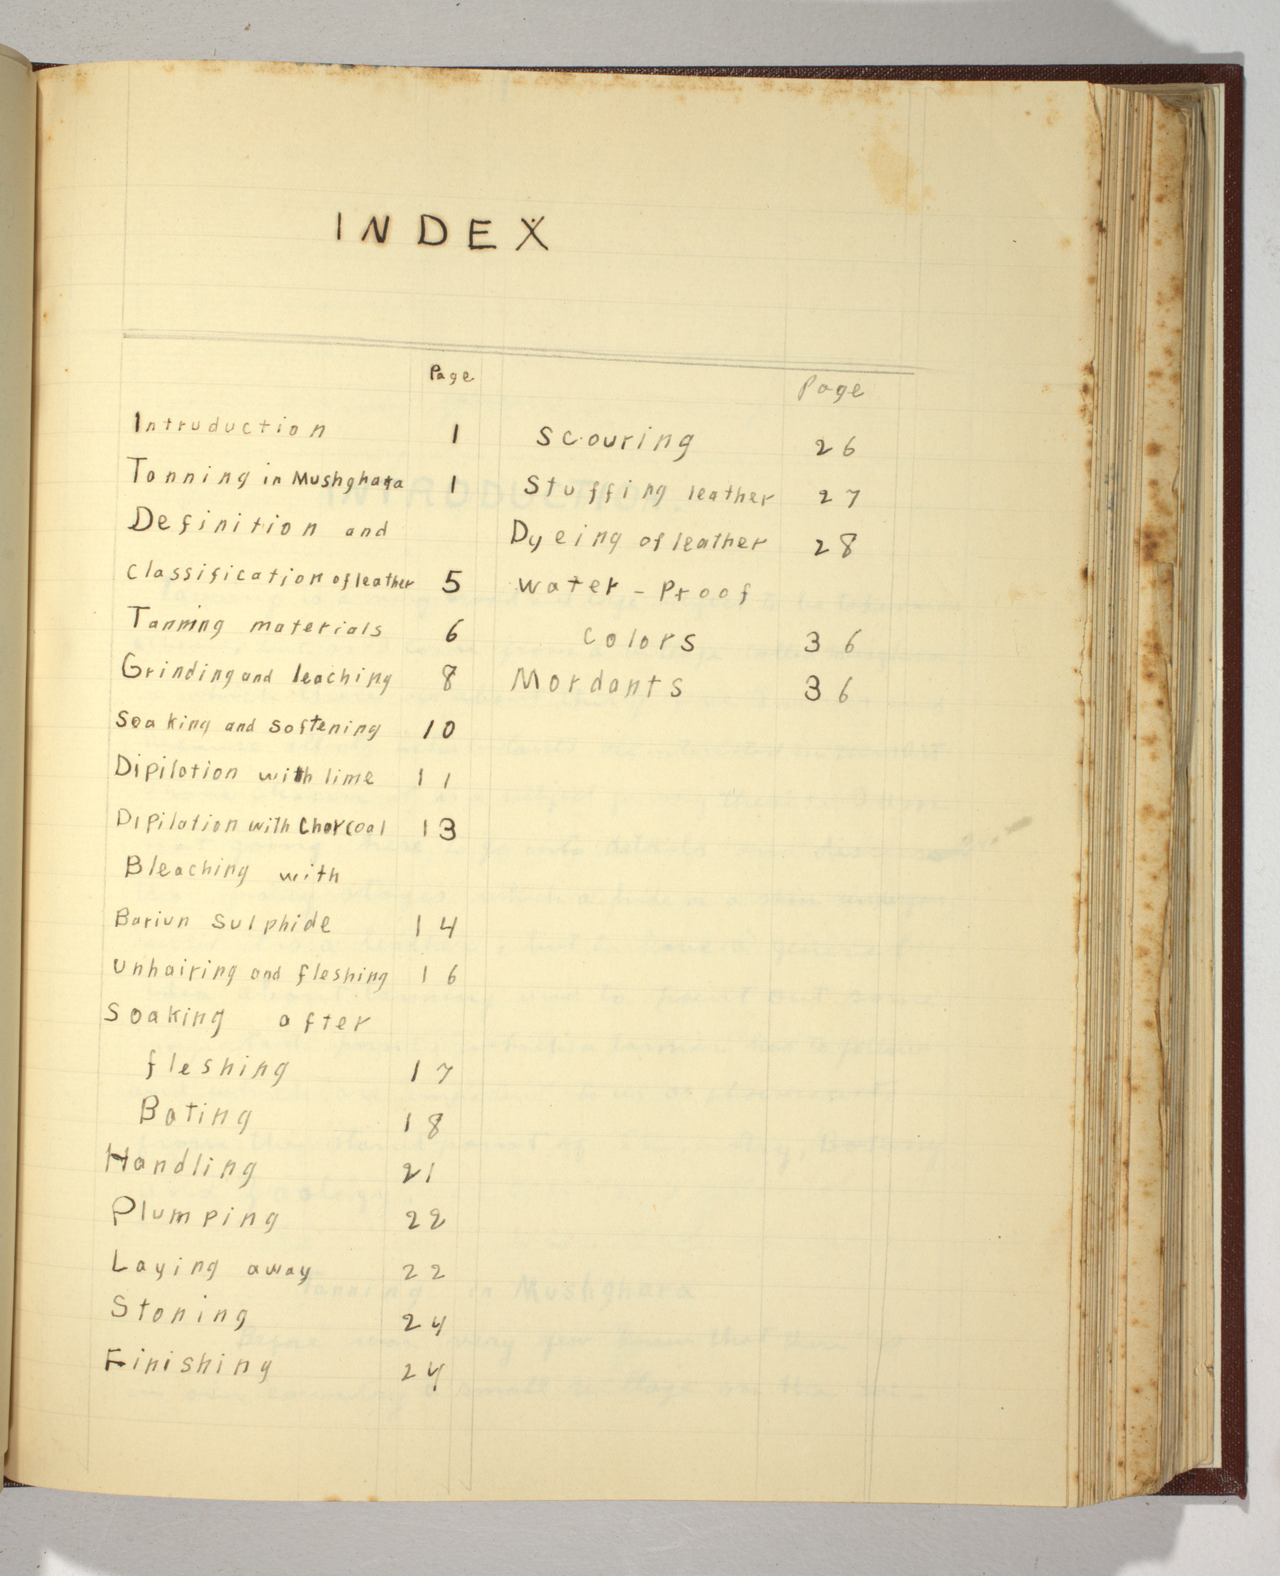 INDEX
Page
Intruduction 1
Tanning in Mushghara 1
Definition and
Classification of leather 5
Tanning materials 6
Grinding and leaching 8
Soaking and softening 10
Dipilation with lime 11
Dipilation with Charcoal 13
Bleaching with
Bariun Sulphide 14
Unhairing and fleshing 16
Soaking after
fleshing 17
Bating 18
Handling 21
Plumping 22
Laying away 22
Stoning 24
Finishing 24
Page
Scouring 26
Stuffing leather 27
Dyeing of leather 28
Water-Proof
Colors 36
Mordants 36